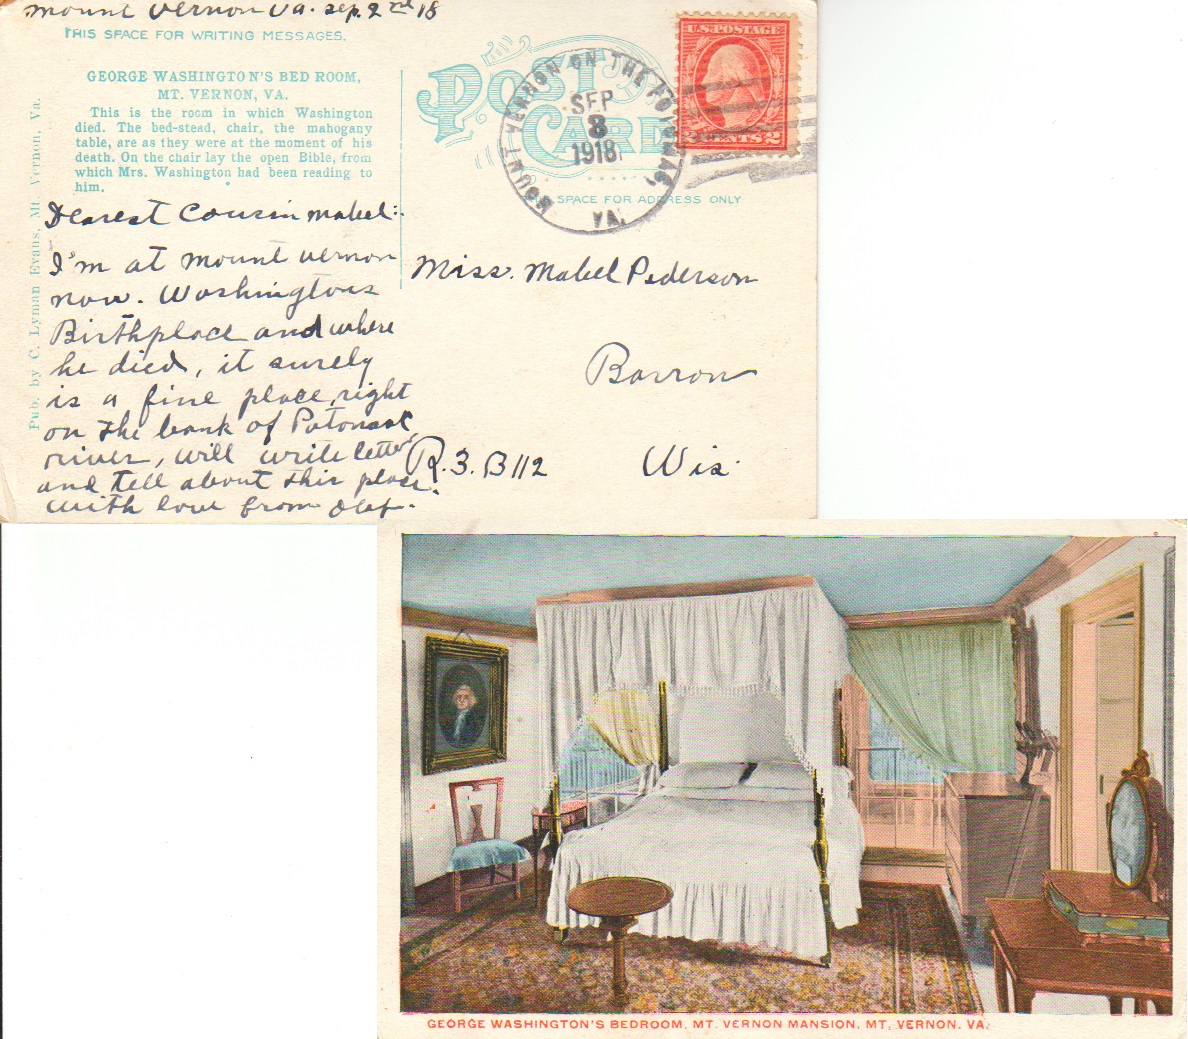 mount vernon va. sep. 2nd 18
THIS SPACE FOR WRITING MESSAGES.
POST CARD
GEORGE WASHINGTON'S BED ROOM,
MT. VERNON, VA.
This is the room in which Washington
died. The bed-stead, chair, the mahogany
table, are as they were at the moment of his
death. On the chair lay the open Bible, from
which Mrs. Washington had been reading to
him.
Pub. by C. Lyman Evans, Mt. Vernon, Va.
U.S. POSTAGE
2 CENTS 2
MOUNT VERNON ON THE POTOMAC,
VA.
SEP
8
1918
SPACE FOR ADDRESS ONLY
Dearest Cousin Mabel:
I'm at mount vernon
now. Washingtons
Birthplace and where
he died, it surely
is a fine place, right
on the bank of Potomac
river, will write letter
and tell about this place.
with love from Olaf.
Miss. Mabel Pederson
Barron
R.3. B112 Wis.
GEORGE WASHINGTON'S BEDROOM, MT. VERNON MANSION, MT. VERNON, VA.